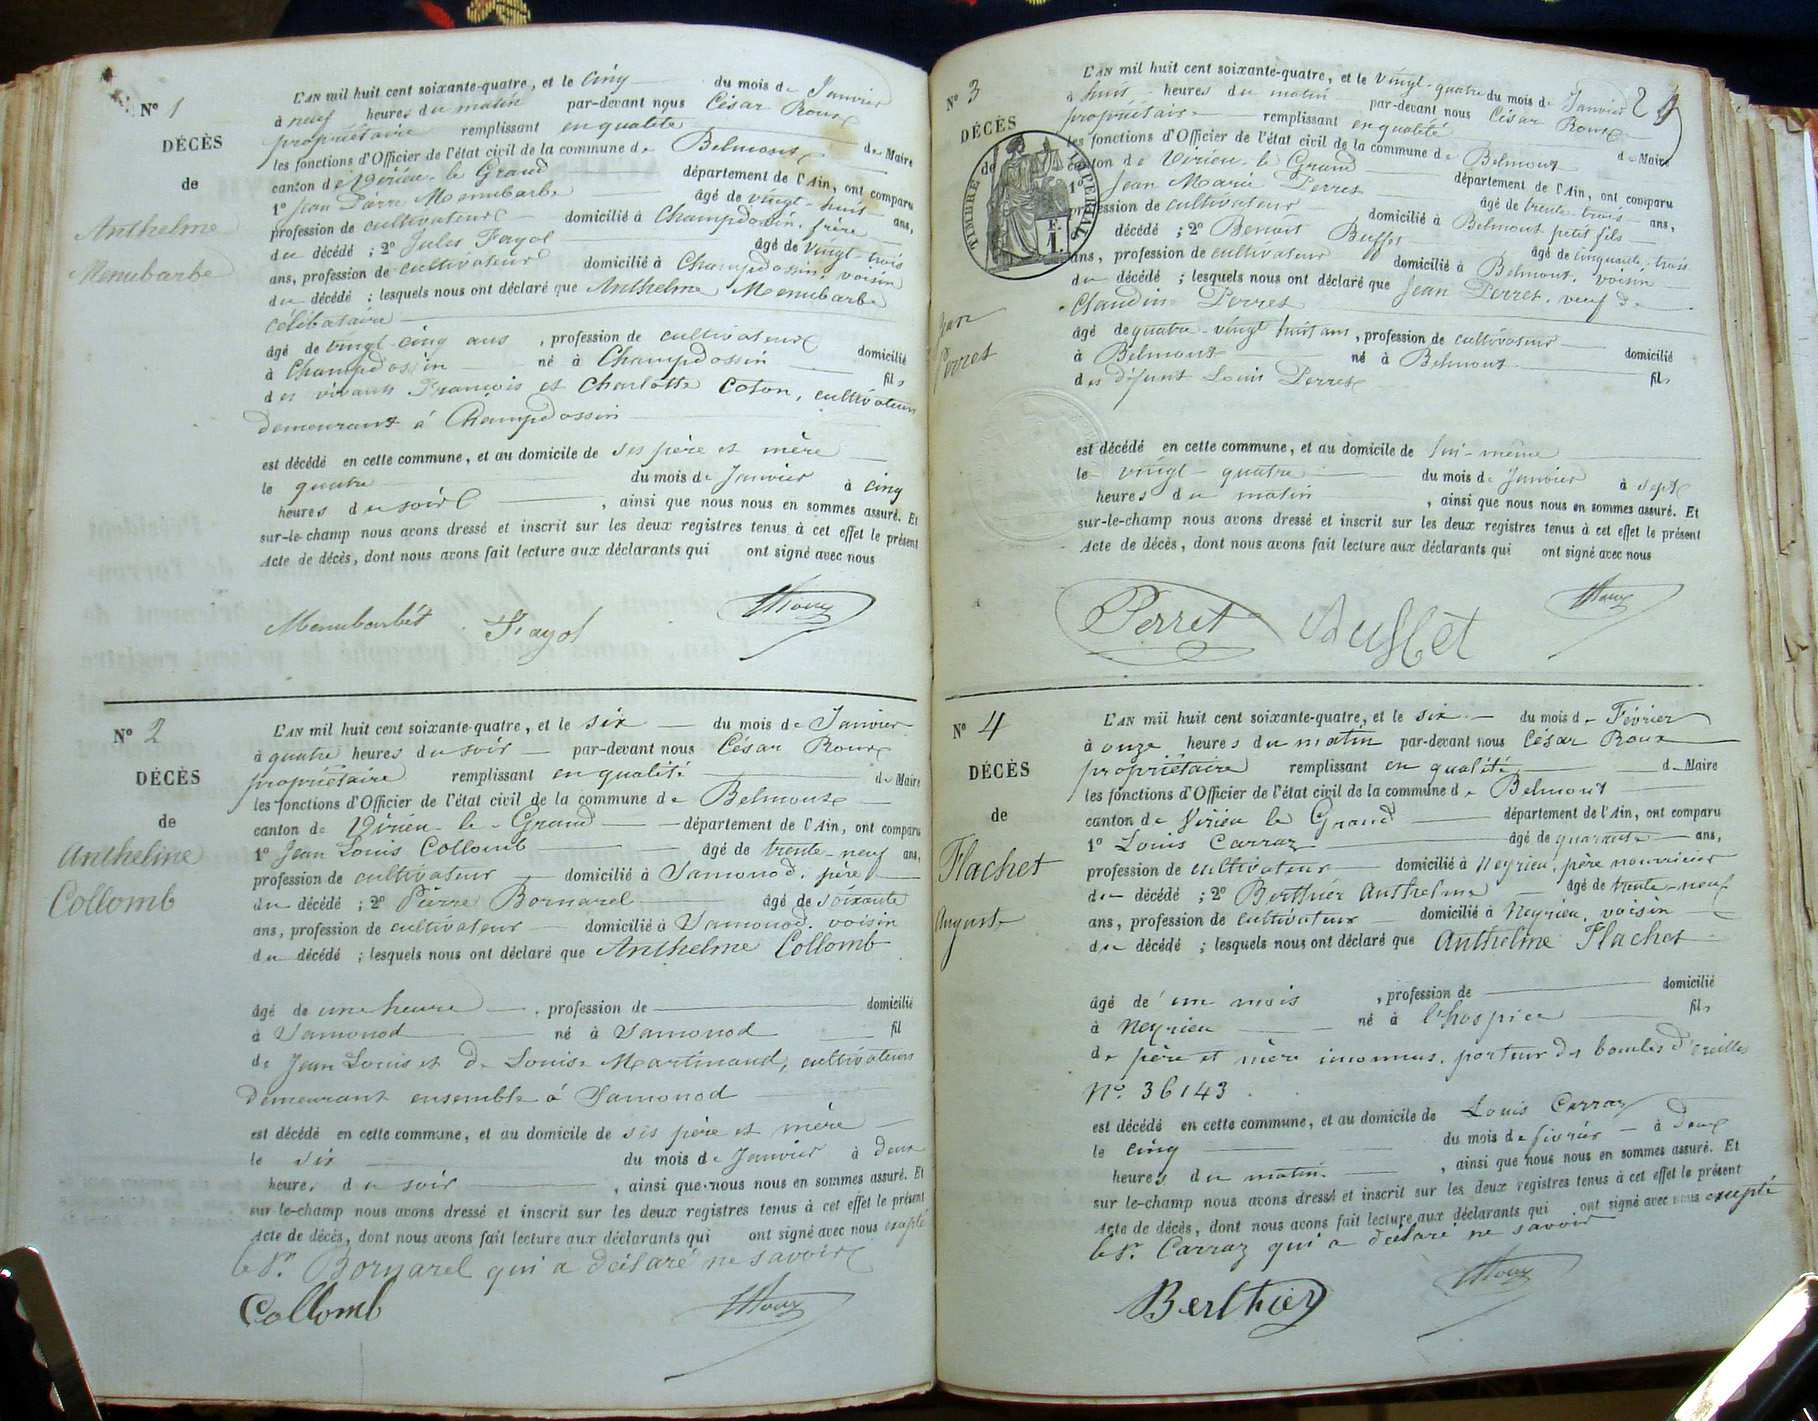 N° 1
DÉCÈS
de
Anthelme
Menubarbe
L'AN mil huit cent soixante-quatre, et le cinq du mois de Janvier
à neuf heures du matin par-devant nous César Roux
propriétaire remplissant en qualité de Maire
les fonctions d'Officier de l'état civil de la commune de Belmont
canton de Virieu-le Grand département de l'Ain, ont comparu
1° Jean Pierre Menubarbe âgé de vingt-huit ans,
profession de cultivateur domicilié à Champdossin, frère
du décédé ; 2° Jules Fayol âgé de vingt-trois
ans, profession de cultivateur domicilié à Champdossin, voisin
du décédé ; lesquels nous ont déclaré que Anthelme Menubarbe
célibataire
âgé de vingt-cinq ans, profession de cultivateur domicilié
à Champdossin né à Champdossin fils
des vivants François et Charlotte Coton, cultivateurs
demeurant à Champdossin
est décédé en cette commune, et au domicile de ses père et mère
le quatre du mois de Janvier à cinq
heures du soir, ainsi que nous nous en sommes assuré. Et
sur-le-champ nous avons dressé et inscrit sur les deux registres tenus à cet effet le présent
Acte de décès, dont nous avons fait lecture aux déclarants qui ont signé avec nous
Menubarbet Fayol Roux
N° 2
DÉCÈS
de
Anthelme
Collomb
L'AN mil huit cent soixante-quatre, et le six du mois de Janvier
à quatre heures du soir par-devant nous César Roux
propriétaire remplissant en qualité de Maire
les fonctions d'Officier de l'état civil de la commune de Belmont
canton de Virieu-le-Grand département de l'Ain, ont comparu
1° Jean Louis Collomb âgé de trente-neuf ans,
profession de cultivateur domicilié à Samonod, père
du décédé ; 2° Pierre Bornarel âgé de soixante
ans, profession de cultivateur domicilié à Samonod, voisin
du décédé ; lesquels nous ont déclaré que Anthelme Collomb
âgé de une heure, profession de domicilié
à Samonod né à Samonod fil
de Jean Louis et de Louise Martinaud, cultivateurs
demeurant ensemble à Samonod
est décédé en cette commune, et au domicile de ses père et mère
le six du mois de Janvier à deux
heures du soir, ainsi que nous nous en sommes assuré. Et
sur-le-champ nous avons dressé et inscrit sur les deux registres tenus à cet effet le présent
Acte de décès, dont nous avons fait lecture aux déclarants qui ont signé avec nous excepté
le Sr. Bornarel qui a déclaré ne savoir
Collomb Roux
N° 3
DÉCÈS
de
TIMBRE IMPÉRIAL
1 F.
Jean
Perret
L'AN mil huit cent soixante-quatre, et le vingt-quatre du mois de Janvier
à huit heures du matin par-devant nous César Roux
propriétaire remplissant en qualité de Maire
les fonctions d'Officier de l'état civil de la commune de Belmont
canton de Virieu-le Grand département de l'Ain, ont comparu
1° Jean Marie Perret âgé de trente-trois ans,
profession de cultivateur domicilié à Belmont petit fils
décédé ; 2° Benoit Buffet âgé de cinquante-trois
ans, profession de cultivateur domicilié à Belmont, voisin
du décédé ; lesquels nous ont déclaré que Jean Perret, veuf de
Claudine Perret
âgé de quatre-vingt huit ans, profession de cultivateur domicilié
à Belmont né à Belmont fils
des défunt Louis Perret
est décédé en cette commune, et au domicile de lui-même
le vingt-quatre du mois de Janvier à sept
heures du matin, ainsi que nous nous en sommes assuré. Et
sur-le-champ nous avons dressé et inscrit sur les deux registres tenus à cet effet le présent
Acte de décès, dont nous avons fait lecture aux déclarants qui ont signé avec nous
Perret Buffet Roux
N° 4
DÉCÈS
de
Flachet
Auguste
L'AN mil huit cent soixante-quatre, et le six du mois de Février
à onze heures du matin par-devant nous César Roux
propriétaire remplissant en qualité de Maire
les fonctions d'Officier de l'état civil de la commune de Belmont
canton de Virieu le Grand département de l'Ain, ont comparu
1° Louis Carraz âgé de quarante ans,
profession de cultivateur domicilié à Neyrieu, père nourricier
du décédé ; 2° Berthier Anthelme âgé de trente-neuf
ans, profession de cultivateur domicilié à Neyrieu, voisin
du décédé ; lesquels nous ont déclaré que Anthelme Flachet
âgé de un mois, profession de domicilié
à Neyrieu né à l'hospice fils
de père et mère inconnus, porteur des boucles d'oreilles
N° 36143.
est décédé en cette commune, et au domicile de Louis Carraz
le cinq du mois de février à deux
heures du matin, ainsi que nous nous en sommes assuré. Et
sur le-champ nous avons dressé et inscrit sur les deux registres tenus à cet effet le présent
Acte de décès, dont nous avons fait lecture aux déclarants qui ont signé avec nous excepté
le Sr. Carraz qui a déclaré ne savoir
Berthier Roux